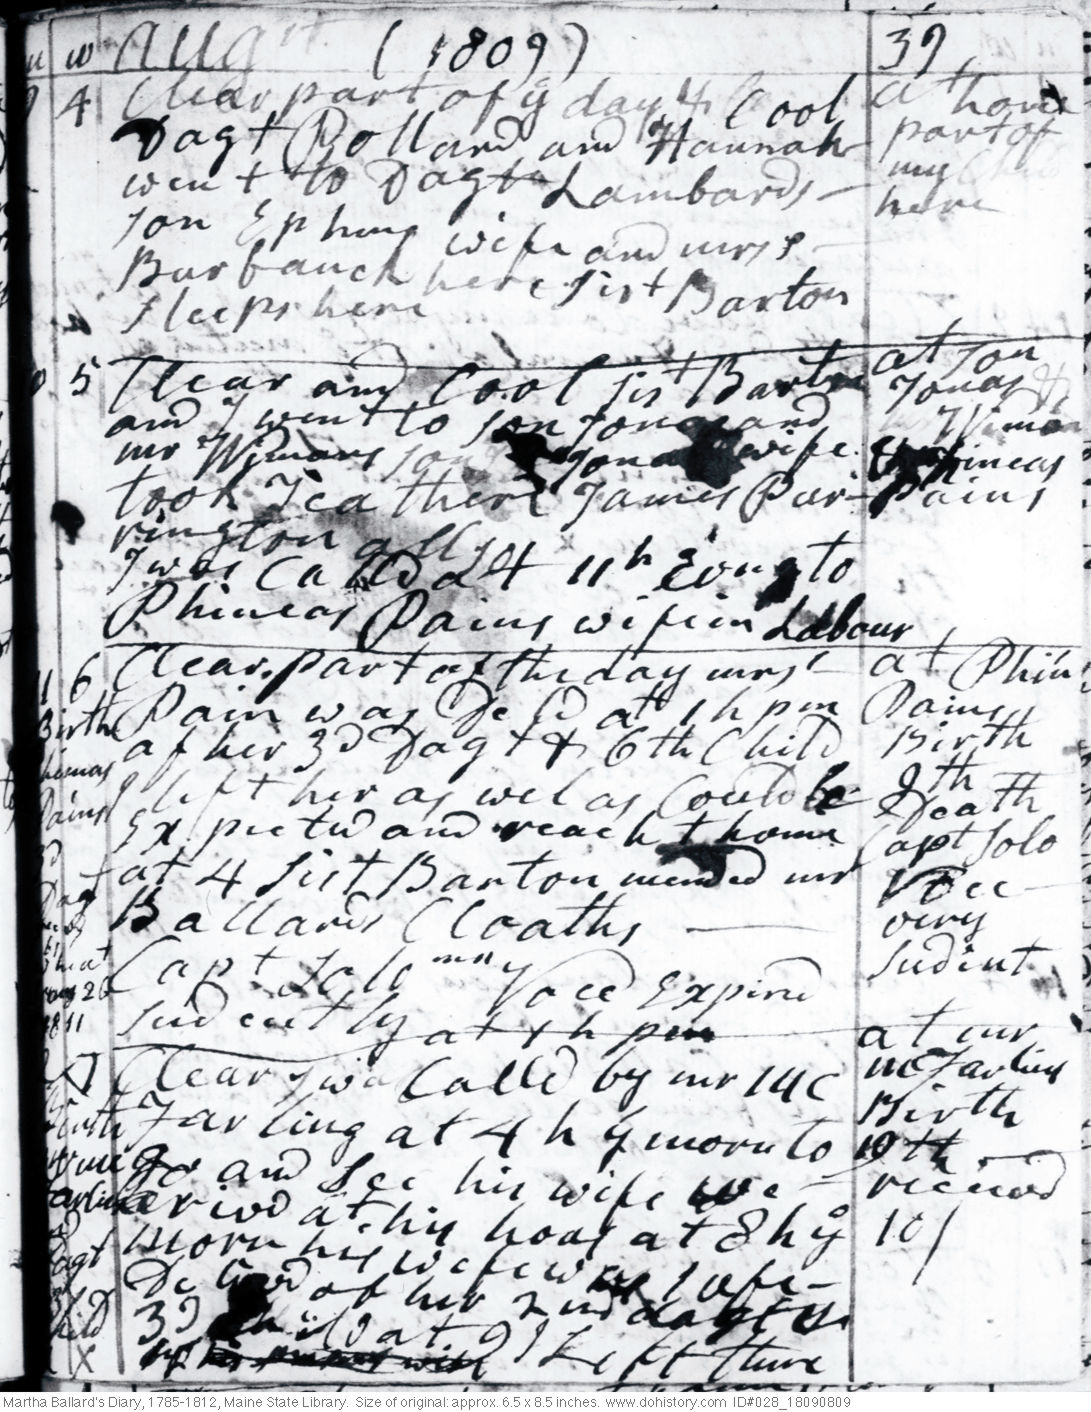 w Augt (1809) 39
4 Clear part of ye day & Cool
Dagt Pollard and Hannah
went to Dagt Lambards
son Ephms wife and mrss
Burbanck here Sist Barton
sleeps here
at home
part of
my
here
5 Clear and Cool Sist Barton
and I went to son Jonas and
mr Wimans son Jonas wife
took Tea there James Pur-
rington
I was Calld at 11 h Evng to
Phineas Pains wife in Labour
at son
Jonas &
Wimans
Phineas
Pains
6 Clear part of the day mrs
Pain was Deld at 1 h pm
of her 3d Dagt & 6th Child
I left her as wel as Could be
Expected and reacht home
at 4 Sist Barton mended mr
Ballards Cloaths
Capt Sollomn Voce Expird
sudently at 1 h pm
at Phin
Pains
Birth
9th
Death
Capt Solo
Voce
very
sudent
Birth
Phineas
Pains
3d
Dag
26
1811
7 Clear I was Calld by mr Mc
Farling at 4 h ye morn to
go and See his wife we
arivd at his hous at 8 h ye
morn his wife was safe
Delivrd of her 2nd dagt &
3d Child at 9 I Left there
at mr
mcFarlins
Birth
10th
receivd
10/
Birth
Farlin
Dagt
Child
X
Martha Ballard's Diary, 1785-1812, Maine State Library. Size of original: approx. 6.5 x 8.5 inches. www.dohistory.com ID#028_18090809